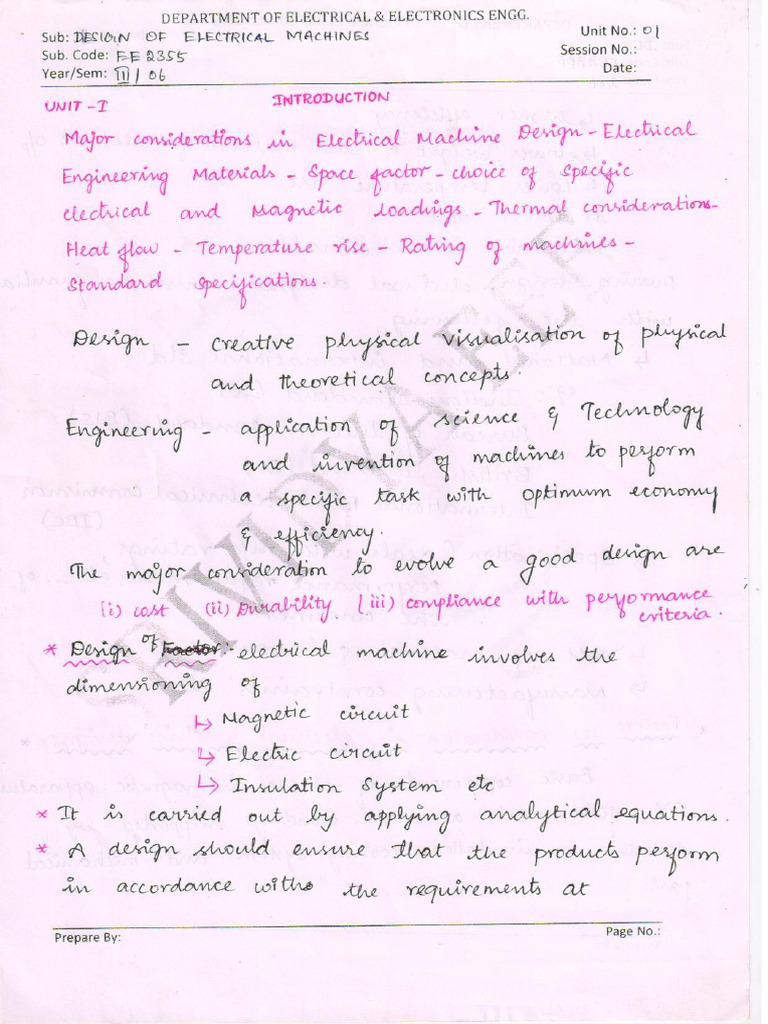 DEPARTMENT OF ELECTRICAL & ELECTRONICS ENGG.
Sub: DESIGN OF ELECTRICAL MACHINES Unit No.: 01
Sub. Code: EE 2355 Session No.:
Year/Sem: III / 06 Date:
UNIT - I INTRODUCTION
Major considerations in Electrical Machine Design - Electrical
Engineering Materials - Space factor - choice of Specific
electrical and Magnetic loadings - Thermal considerations -
Heat flow - Temperature rise - Rating of machines -
Standard Specifications.
Design - creative physical visualisation of physical
and theoretical concepts.
Engineering - application of science & Technology
and invention of machines to perform
a specific task with optimum economy
& efficiency.
The major consideration to evolve a good design are
(i) cost (ii) Durability (iii) compliance with performance
criteria.
* Design of Factor:- electrical machine involves the
dimensioning of
↳ Magnetic circuit
↳ Electric circuit
↳ Insulation System etc
* It is carried out by applying analytical equations.
* A design should ensure that the products perform
in accordance with the requirements at
Prepare By: Page No.:
SRIVIDYA EEE